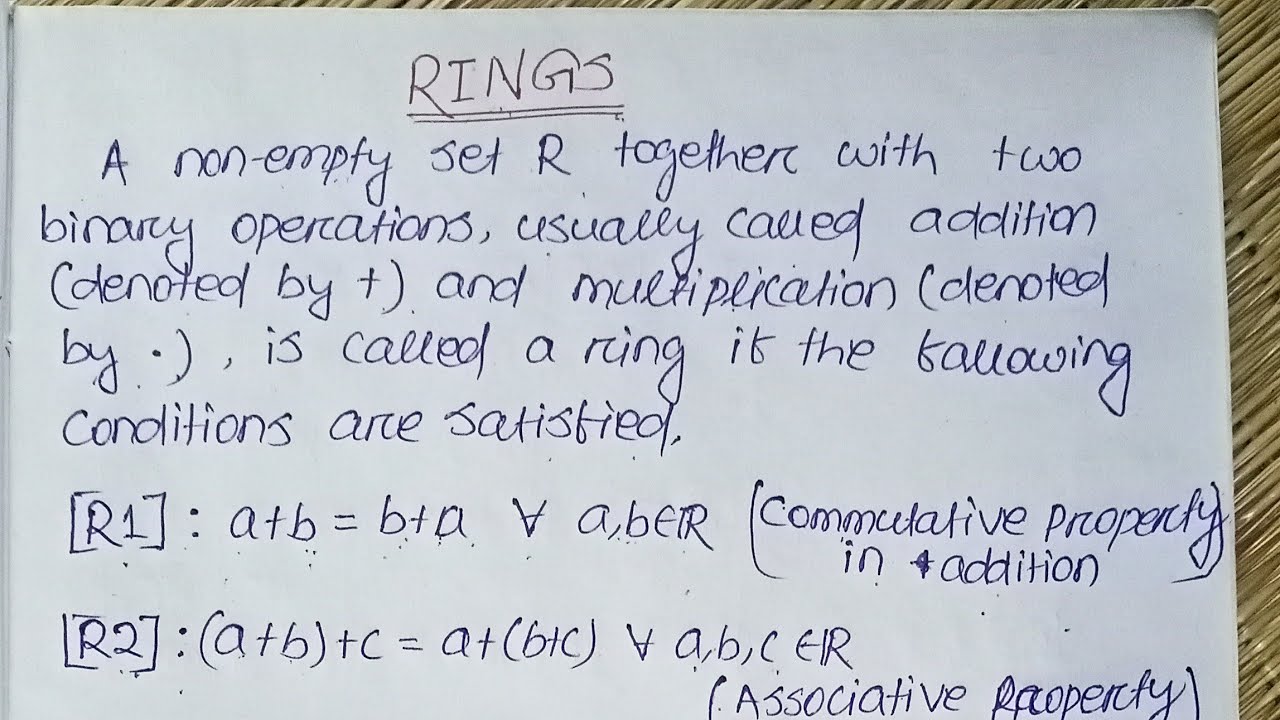 RINGS
A non-empty set R together with two
binary operations, usually called addition
(denoted by +) and multiplication (denoted
by ·), is called a ring if the following
conditions are satisfied.
[R1] : a+b = b+a ∀ a,b∈R (Commutative property
in addition)
[R2] : (a+b)+c = a+(b+c) ∀ a,b,c ∈R
(Associative Property)